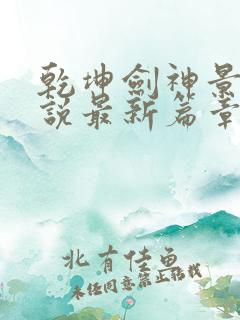 乾坤劍神景
說最新篇章
北有佳魚
未经同意禁止转载